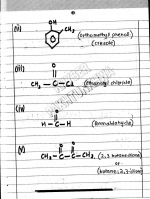 (ii)
OH
CH₃
(orthomethyl phenol)
(cresole)
(iii)
O
CH₃ — C — Cl
(ethanoyl chloride)
(iv)
O
H — C — H
(formaldehyde)
(v)
O O
CH₃ — C — C — CH₃
(2,3 butanedione)
or
(butane-2,3-dione)